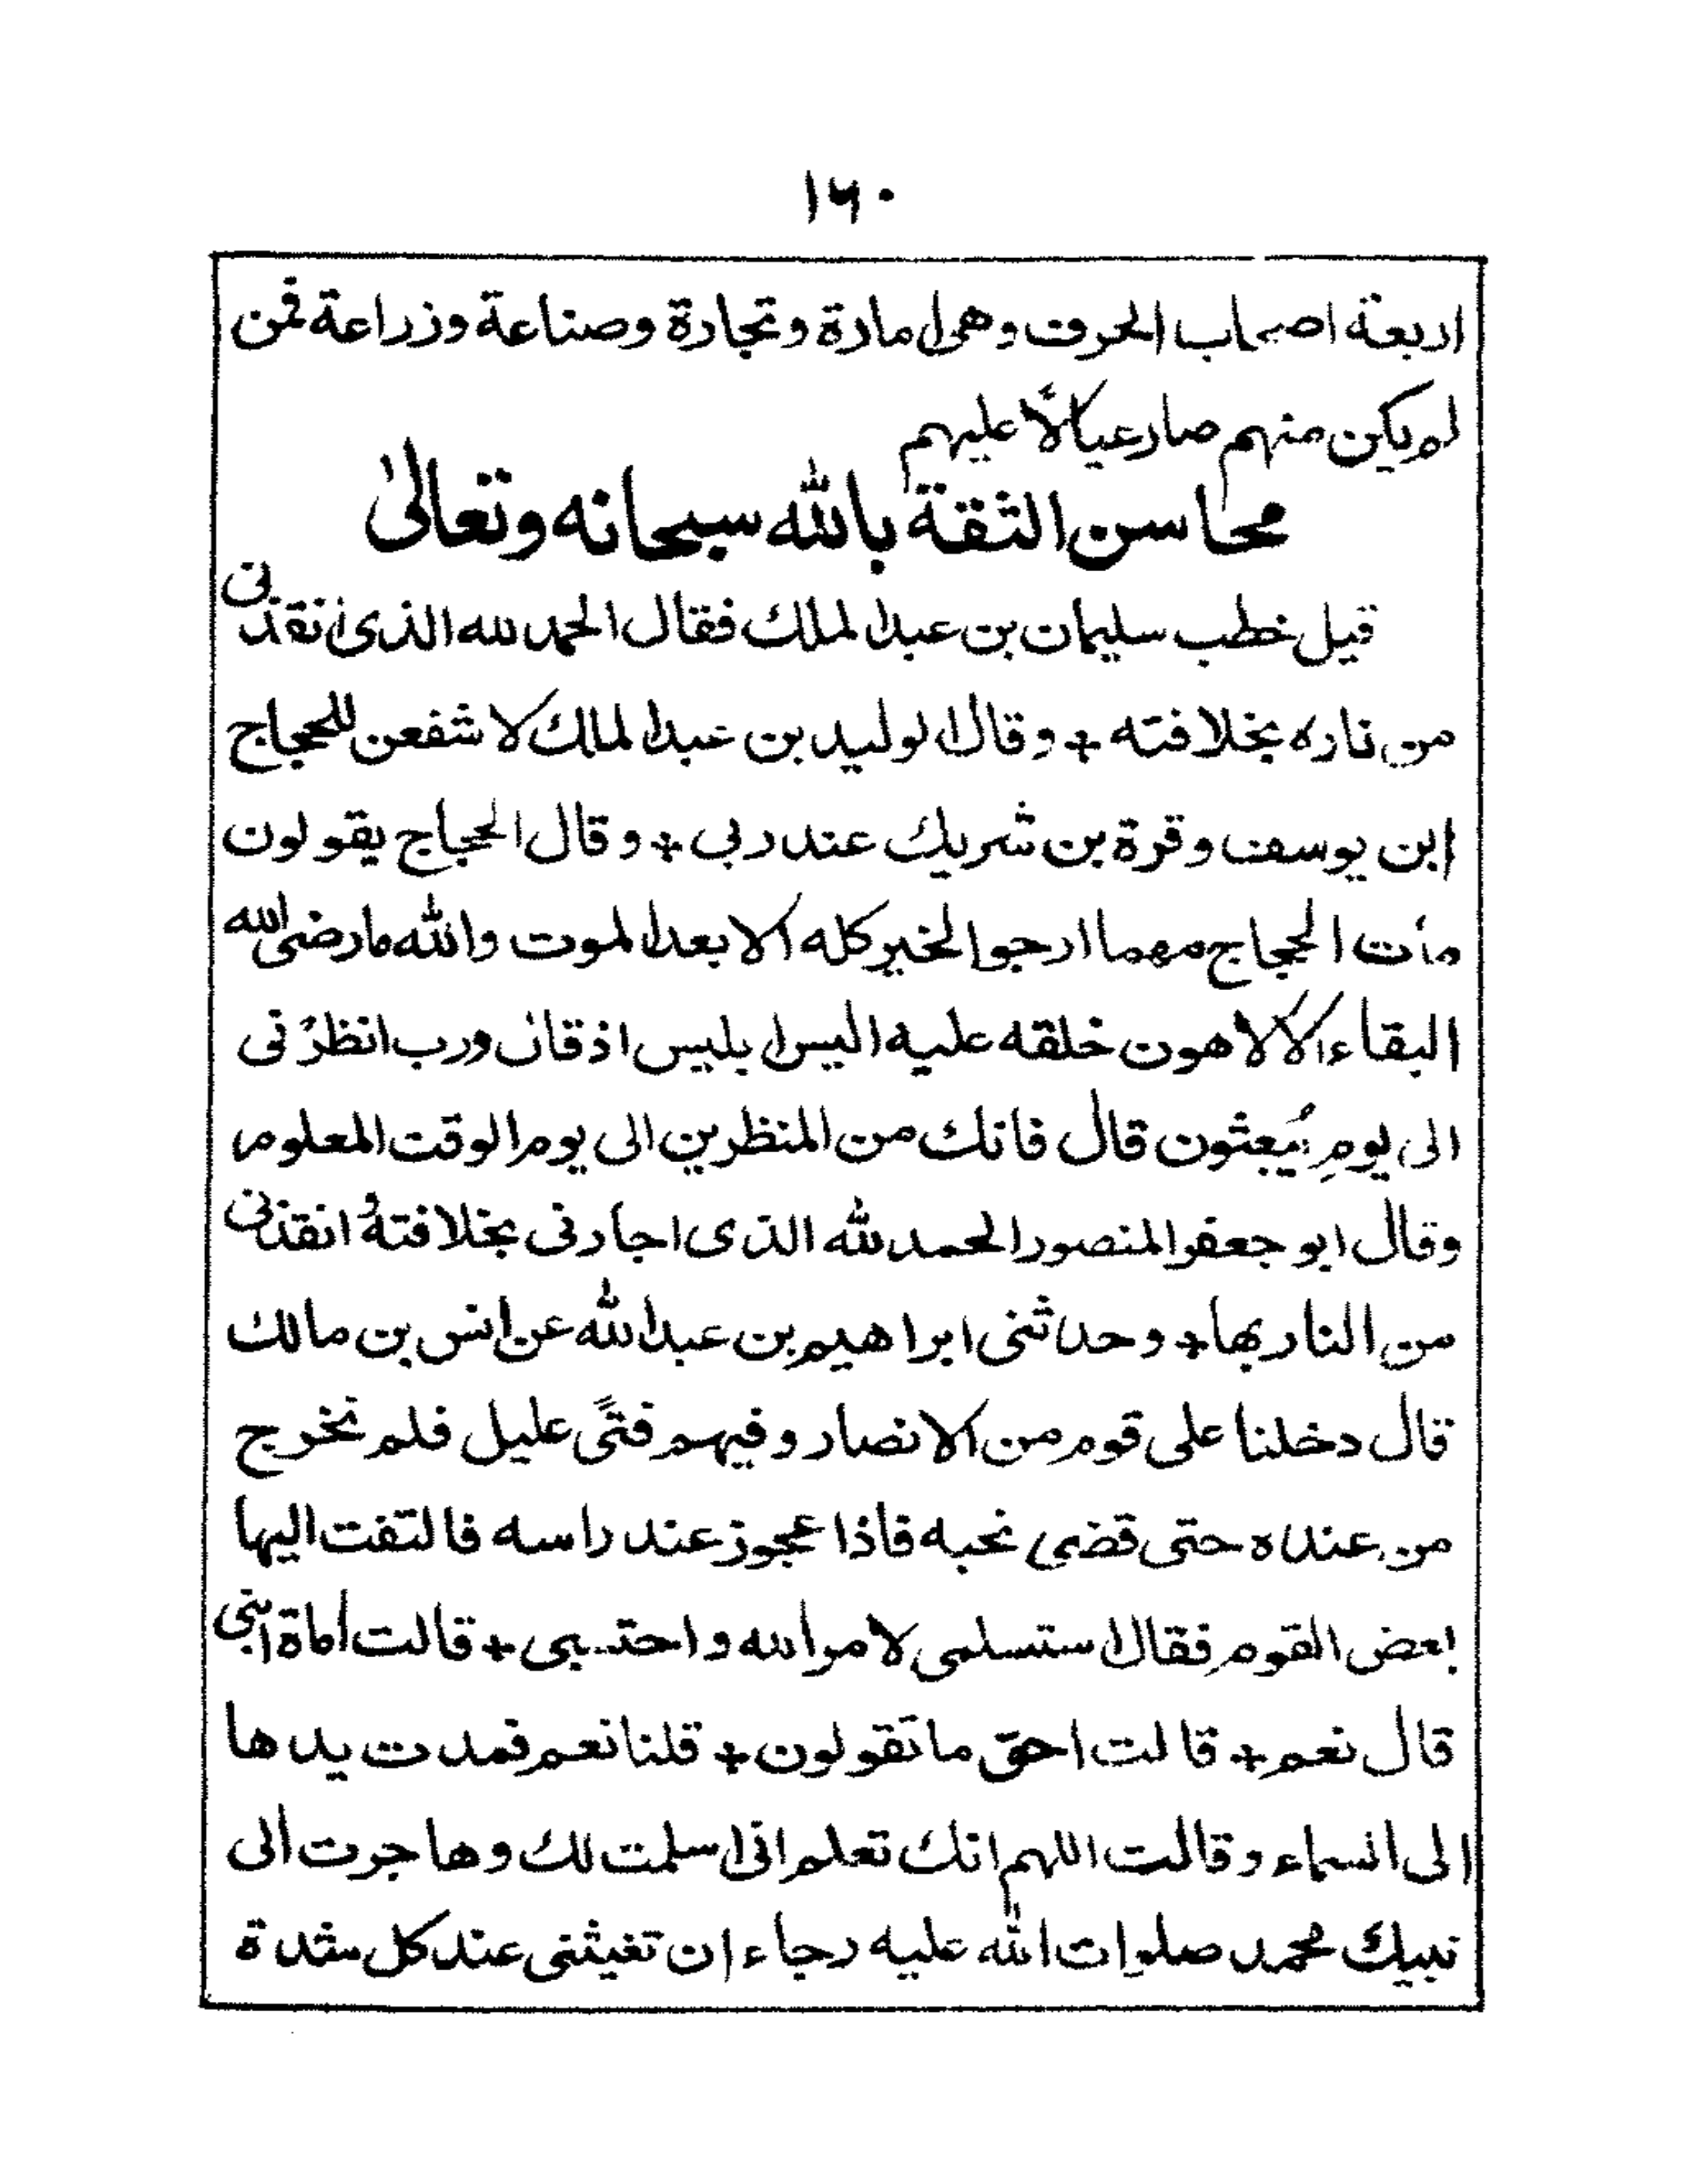 ١٦٠
اربعة اصحاب الحرف وهى امارة وتجارة وصناعة وزراعة فمن
لم يكن منهم صار عيالًا عليهم
محاسن الثقة بالله سبحانه وتعالىٰ
قيل خطب سليمان بن عبد الملك فقال الحمد لله الذى انقذنى
من ناره بخلافته + وقال الوليد بن عبد الملك لا شفعن للحجاج
ابن يوسف وقرة بن شريك عند ربى + وقال الحجاج يقولون
مات الحجاج مهما ارجوا الخير كله الا بعد الموت والله ما رضى الله
البقاء الا لاهون خلقه عليه اليس ابليس اذ قال رب انظرنى
الى يومِ يُبعثون قال فانك من المنظرين الى يوم الوقت المعلوم
وقال ابو جعفر المنصور الحمد لله الذى اجارنى بخلافته انقذنى
من النار بها + وحدثنى ابراهيم بن عبد الله عن انس بن مالك
قال دخلنا على قوم من الانصار وفيهم فتًى عليل فلم نخرج
من عنده حتى قضى نحبه فاذا عجوز عند راسه فالتفت اليها
بعض القوم فقال استسلمى لامر الله واحتسبى + قالت أماة ابنى
قال نعم + قالت احق ما تقولون + قلنا نعم فمدت يدها
الى السماء وقالت اللهم انك تعلم انى اسلمت لك وهاجرت الى
نبيك محمد صلوات الله عليه رجاء ان تغيثنى عند كل شدة